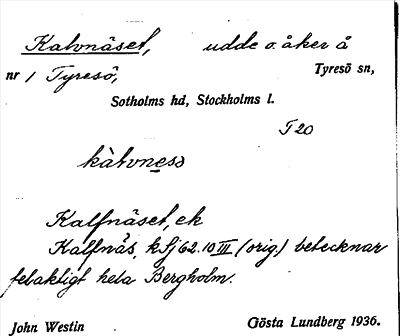 Kalvnäset, udde o. åker å
nr 1 Tyresö, Tyresö sn,
Sotholms hd, Stockholms l.
T 20
kàlvness
Kalfnäset, ek
Kalfnäs, kSj 62.10 III (orig.) betecknar
felaktigt hela Bergholm.
John Westin Gösta Lundberg 1936.